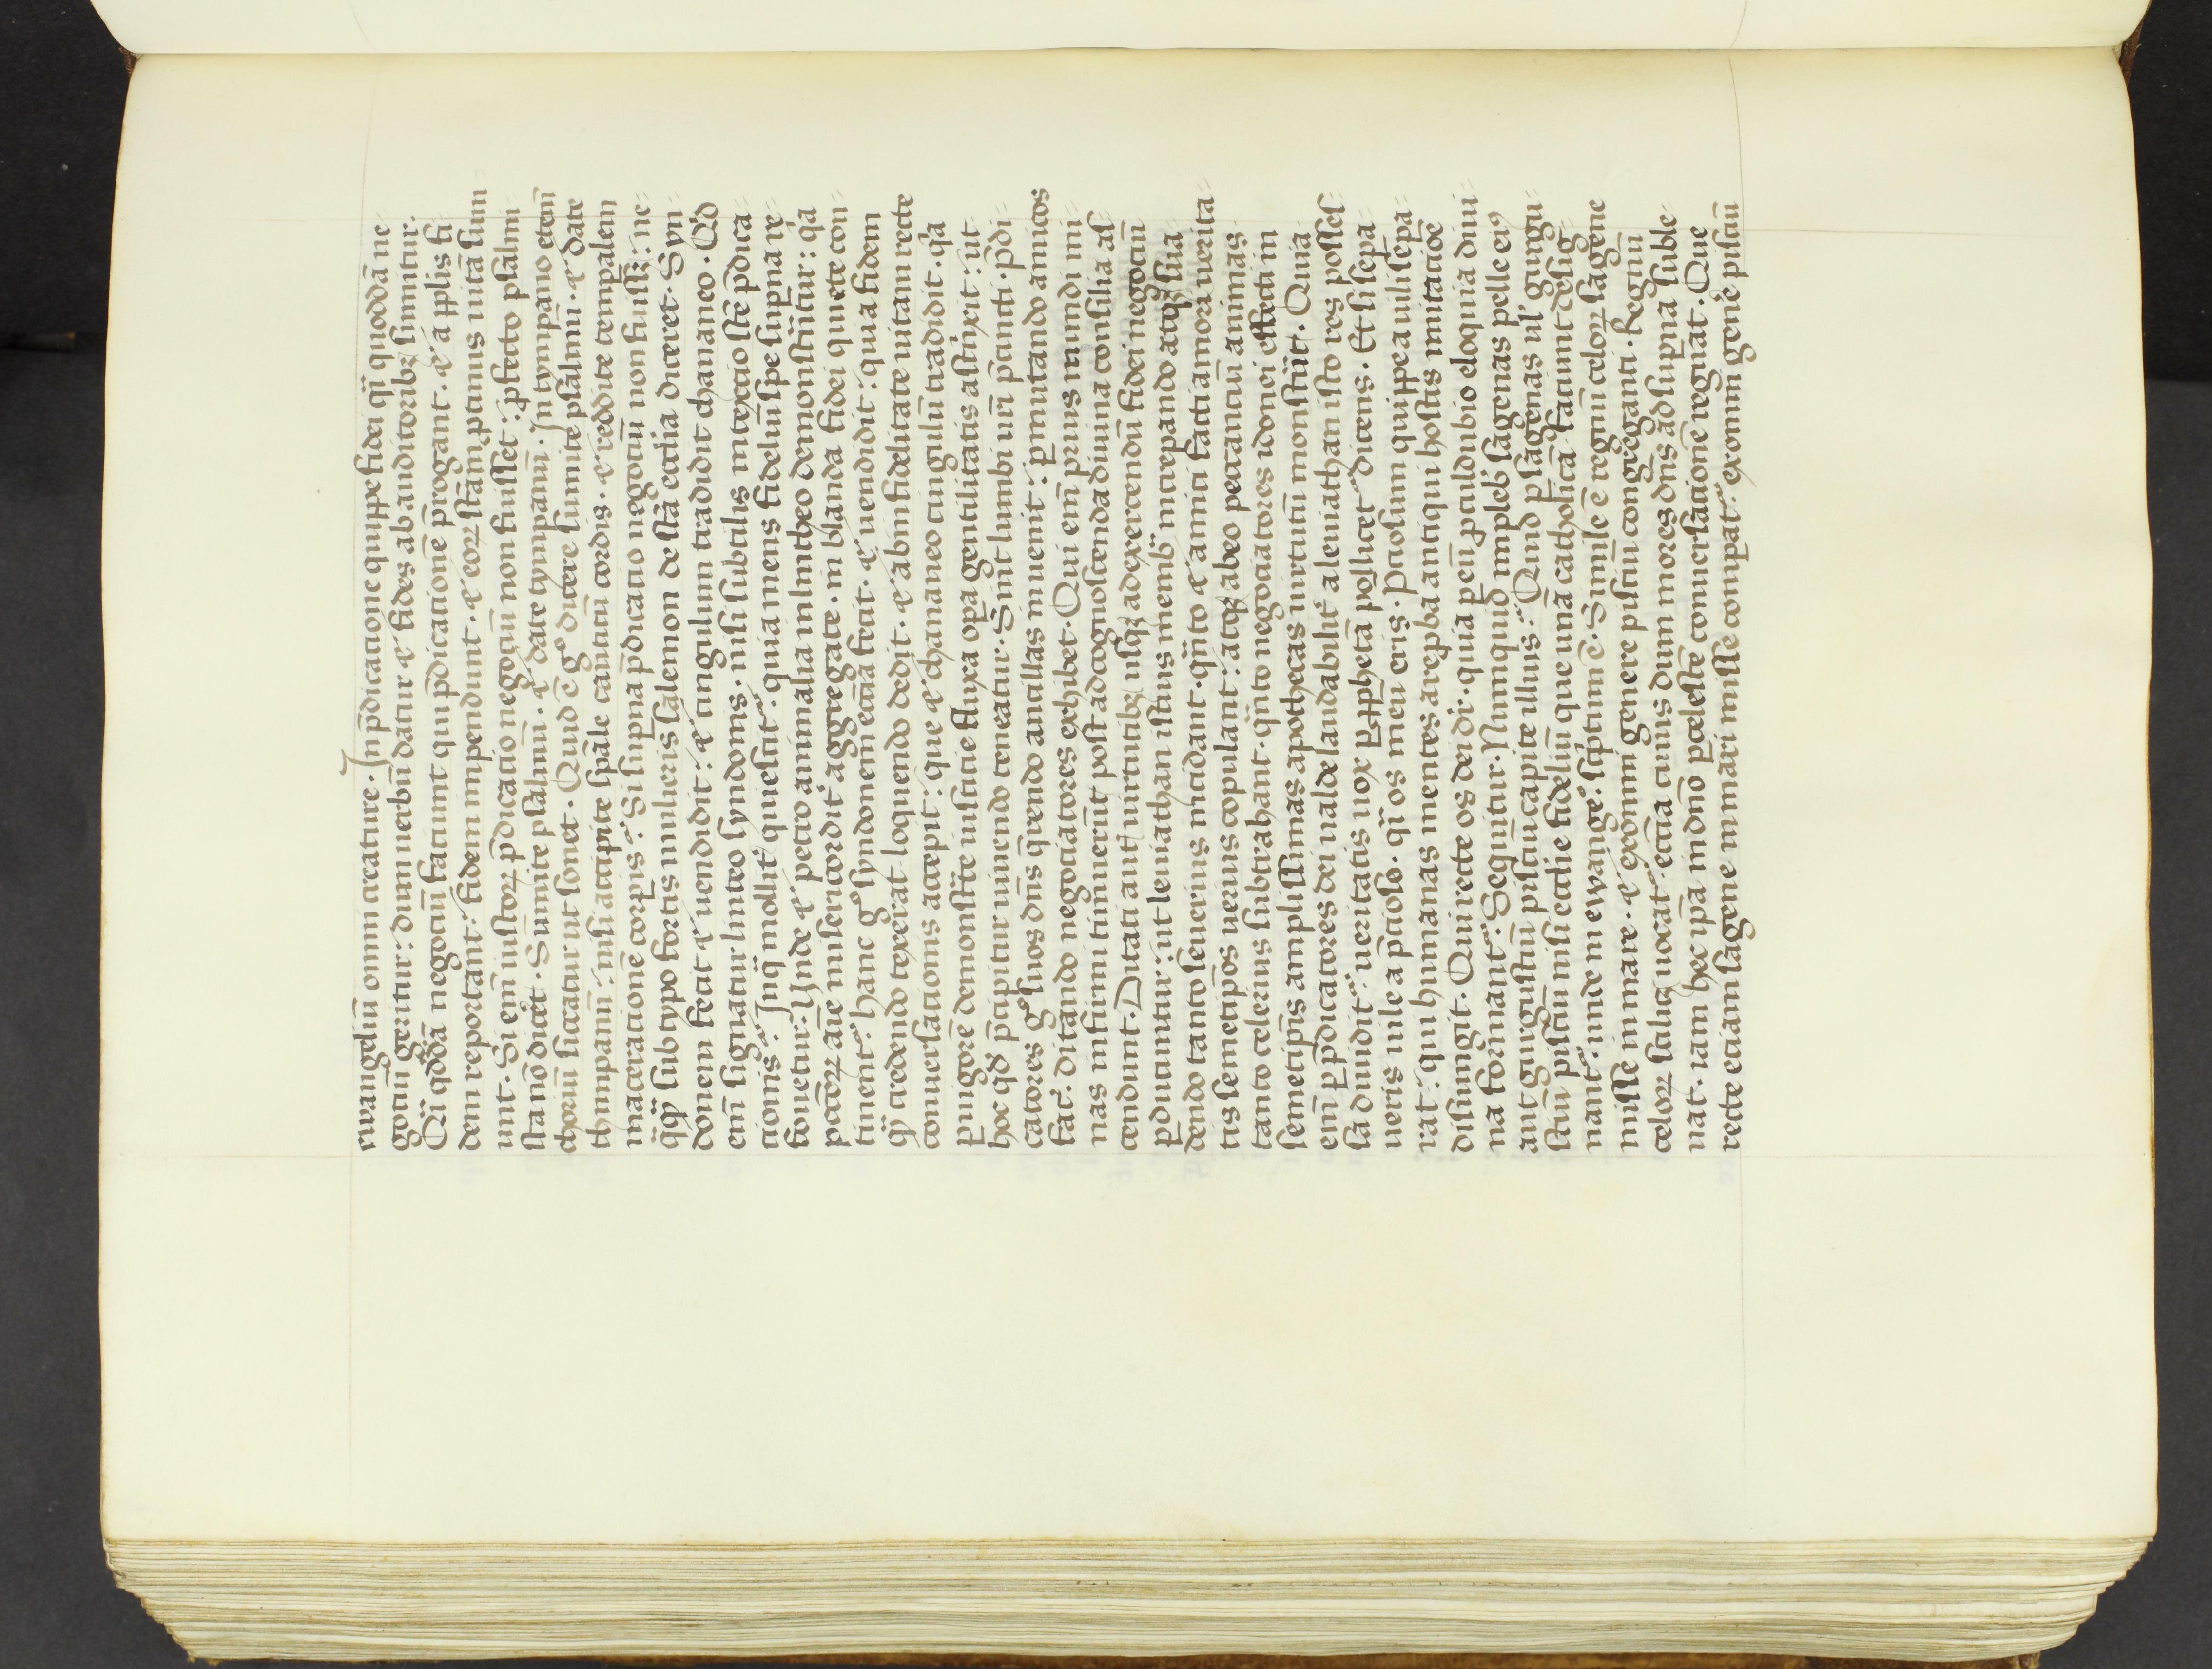 ewangeliū omni creature. In p̄dicatione quippe fidei q̈i quoddā ne=
gotiū geritur: dum uerbū datur ⁊ fides ab auditoribꝫ sumitur.
Q̈i qddā negociū faciunt qui p̄dicationē p̄rogant. ⁊ a pp̄lis fi=
dem reportant: fidem impendunt. ⁊ eoꝝ sc̄am ꝓtinus uitā sum=
unt. Si em̄ iustoꝝ p̄dicatio negociū non fuisset: ꝓfecto psalmi
sta nō dicēt. Sumite psalmū. ⁊ date tympanū. In tympano etenī
choriū siccatur ut sonet. Quid ē gͦ dicere sumite psalmū. ⁊ date
thimpanū: nisi accipite spāle canticū cordis. ⁊ reddite temꝑalem
maceracionē corꝑis. Si suꝑna p̄dicatio negotiū non fuissꝫ: ne=
q̈qͣ sub typo fortis mulieris salemon de sc̄a ecc̄lia diceret. Syn=
donem fecit ⁊ uendidit: ⁊ cingulum tradidit chananeo. Qͥd
em̄ signatur linteo syndonis. nisi subtilis intextio sc̄e p̄dica=
tionis. In q̈ mollit̉ quiescit. quia mens fideliū spe suꝑna re=
fouetur. Vnde ⁊ petro animalia in lintheo demonst̄ntur: qͥa
pctōꝝ aīe misericordit̉ aggregate. in blanda fidei quiete con=
tinent̉. Hanc gͦ syndonem ecc̄ia fecit. ⁊ uendidit: quia fidem
qͣ credendo texerat loquendo dedit. ⁊ ab infidelitate uitam recte
conuersationis accepit: que ⁊ chananeo cingulū tradidit. qͥa
ꝑ uigorē demonstͣte iusticie fluxa oꝑa gentilitatis astͥnxit: ut
hoc qd p̄cipitur uiuendo teneatur. Sint lumbi uri p̄cincti. p̄di=
catores gͦ suos dn̄s q̄rendo ancillas inuenit: ꝑmutando amicos
facͥ. ditando negociatores exhibet. Qui em̄ prius mundi mi=
nas infirmi timuerūt post ad cognoscenda diuina consilia as=
cendunt. Ditati aut̄ uirtutibꝫ usqꝫ ad exercendū fidei negociū
ꝑducuntur: ut leuiathan istius memb̄ increpando atqꝫ sua=
dendo tanto seuerius incidant. qn̄to ⁊ amici facti amori uerita=
tis semetip̄os uerius copulant: atqꝫ ab eo peccanciū animas
tanto celerius subtrahant. qn̄to negociatores idonei effecti in
semetip̄is amplissimas apothecas uirtutū monst̄nt. Quia
em̄ ꝑ p̄dicatores dei ualde laudabilit̉ a leuiathan isto res posses=
sa diuidit̉. ueritatis uox ꝑ ꝓphetā pollicet̉ dicens. Et si sepa=
ueris uile a p̄cioso. q̈i os meū eris. P̄ciosum quippe a uili sepa=
rat: qui humanas mentes a reꝓba antiqui hostis imitacioē
disiungit. Qui recte os dei dr̄. quia ꝑ eū ꝓculdubio eloquia diui=
na formant̉. Sequitur. Numquid impleb̉ sagenas pelle eiꝰ
aut gurgustiū pisciū capite illius. Quid ꝑ sagenas ul̓ gurgu=
stiū pisciū nisi eccl̄ie fideliū que unā catholicā faciunt desig=
nant̉. unde in ewangͦ. scͥptum ē. Simile ē regnū celoꝝ sagene
misse in mare. ⁊ ex omni genere pisciū congreganti. Regnū
celoꝝ scilicꝫ uocat̉ ecc̄ia cuius dum mores dn̄s ad suꝑna suble=
uat. iam hec ip̄a in dn̄o ꝑ celestē conuersationē regnat. Que
recte eciam sagene in mari misse comꝑat̉. ex omni genē pisciū